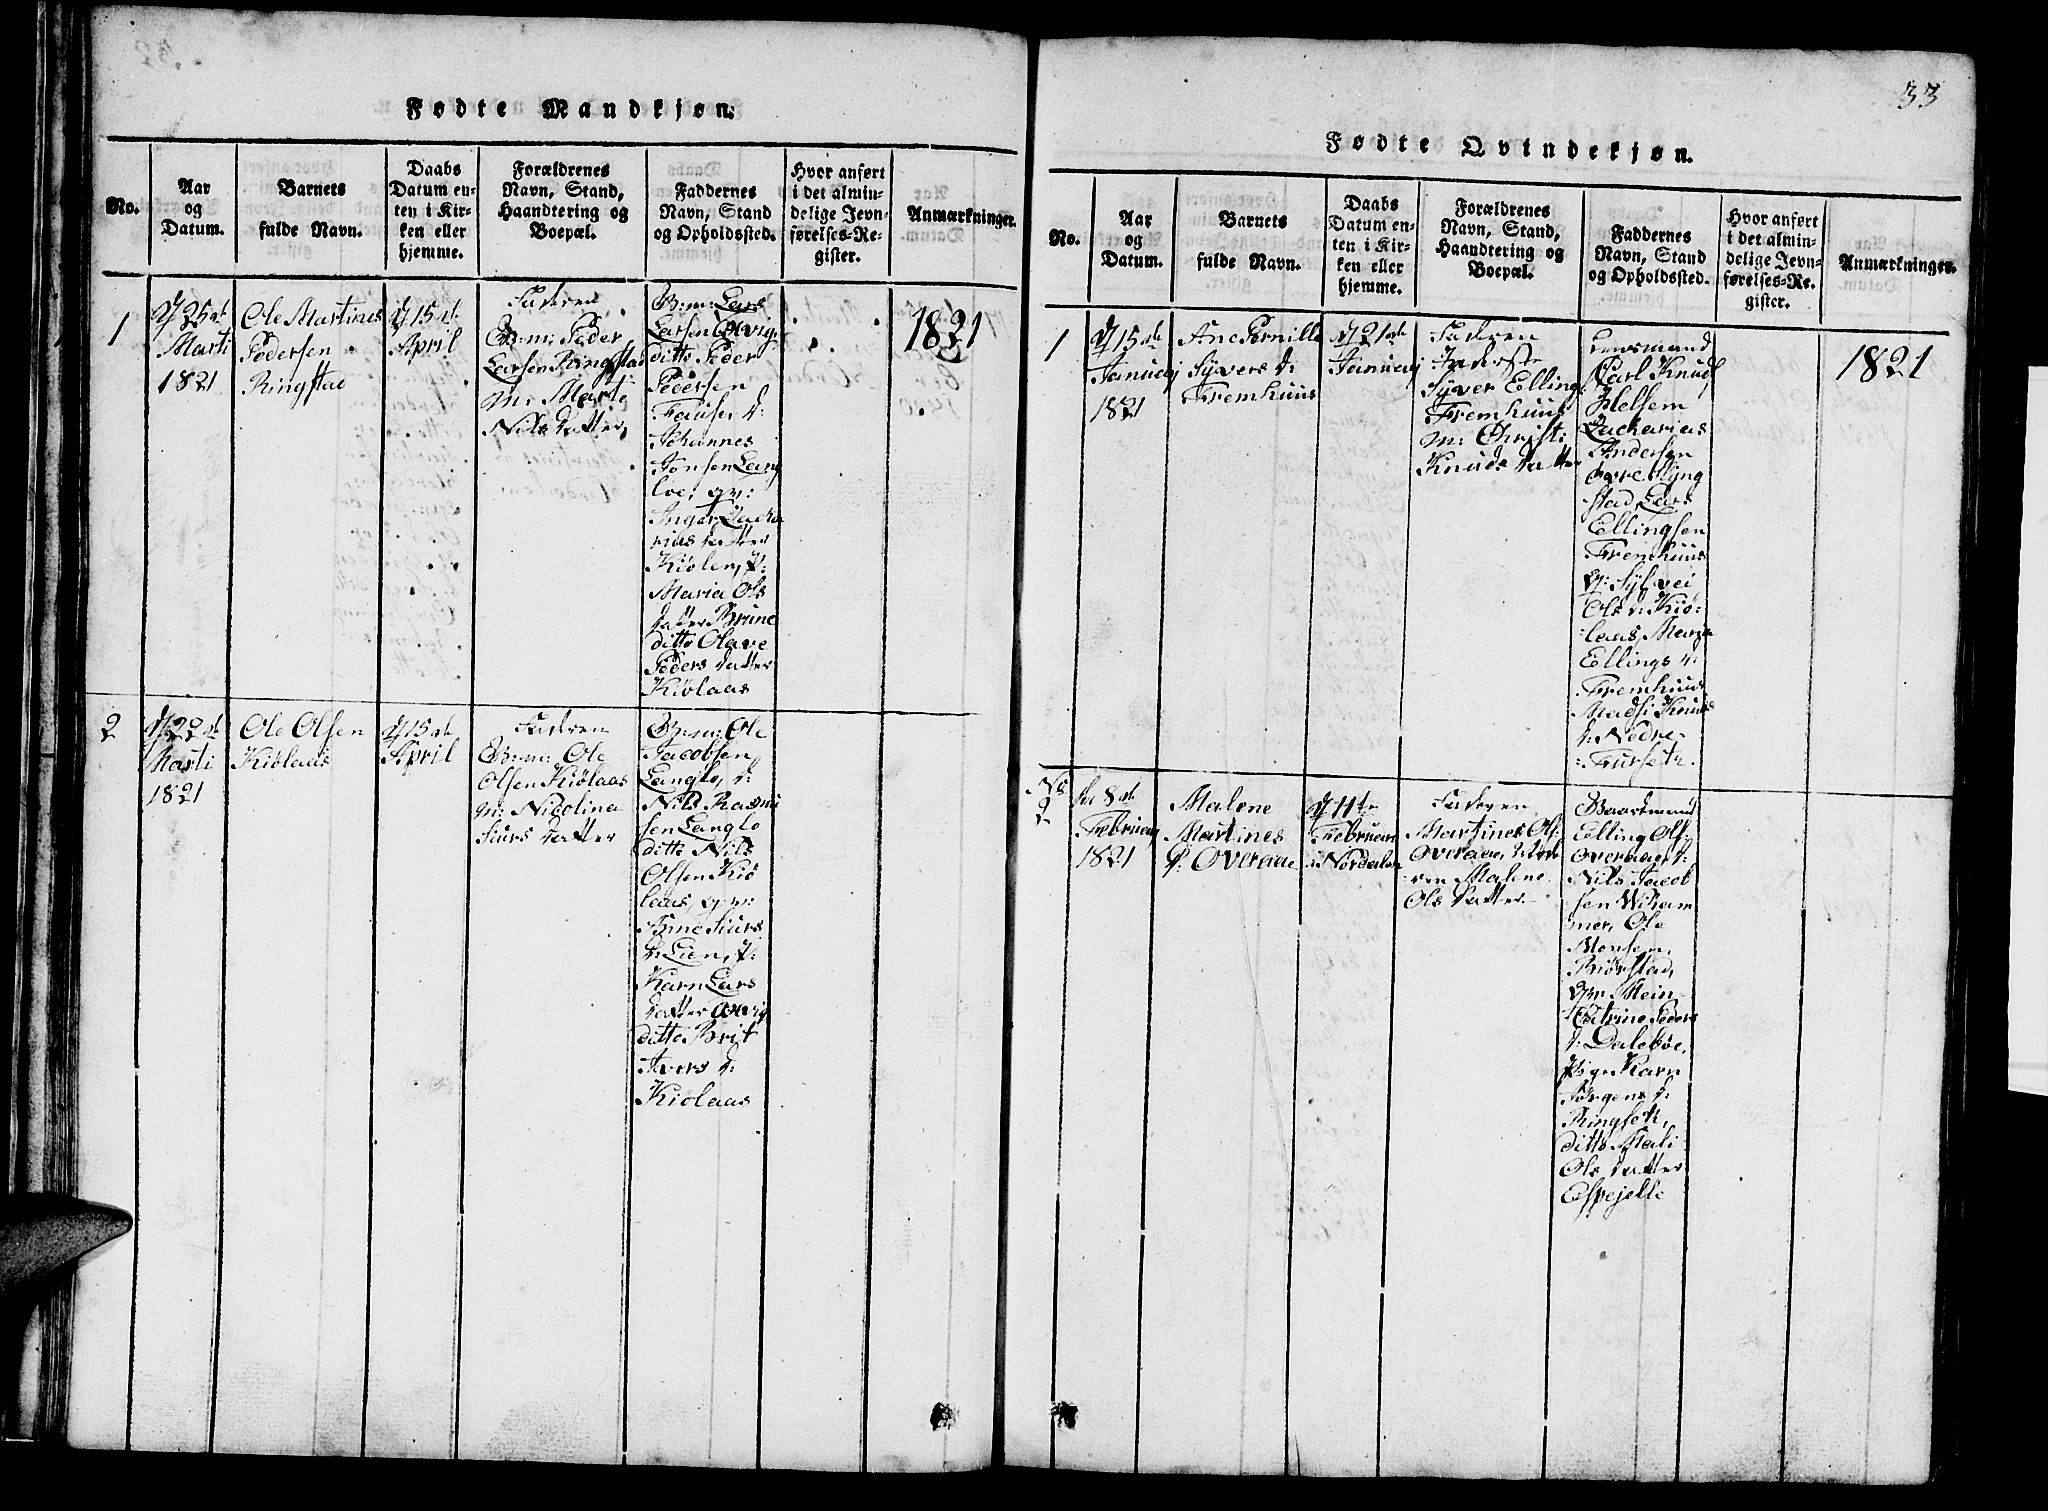 Fødte Mandkjøn.
No.
Aar
og
Datum.
Barnets
fulde Navn.
Daabs
Datum en-
ten i Kir-
ken eller
hjemme.
Forældrenes
Navn, Stand,
Haandtering og
Boepæl.
Faddernes
Navn, Stand
og Opholdssted.
Hvor anført
i det almin-
delige Jevn-
førelses-Re-
gister.
Anmærkninger.
1
25de
Marti
1821
Ole Martines
Pedersen
Ringstad
15de
April
Faderen
B:m: Peder
Larsen Ringstad
M: Marte
Nils datter,
B:m: Lars
Larsen Overvig
ditto Peder
Pedersen
Johannes
Jonsen Lang
loe, qv:
Inger Zacha
rias datter
Kiølen, P:
Maria Ols
datter Brune
ditto Olave
Peders datter
Kiølaas
1821
2
22de
Marti
1821
Ole Olsen
Kiølaas
15de
April
Faderen
B:m: Ole
Olsen Kiølaas
M: Nicolina
Siurs datter
B:m: Ole
Jacobsen
Langlo, d:
Nils Rasmu
sen Langlo
ditto Nils
Olsen Kiø
laas, qv:
Anne Siurs
d: Lien, P:
Karn Lars
datter Overvig
ditto Brit
Ivers d:
Kiølaas
33
Fødte Qvindekjøn.
No.
Aar
og
Datum.
Barnets
fulde Navn.
Daabs
Datum en-
ten i Kir-
ken eller
hjemme.
Forældrenes
Navn, Stand,
Haandtering og
Boepæl.
Faddernes
Navn, Stand
og Opholdssted.
Hvor anført
i det almin-
delige Jevn-
førelses-Re-
gister.
Anmærkninger.
1
15de
Januarj
1821
Ane Pernille
Syvers d:
Fremhuus
21de
Januarj
Faderen
Inderste
Syver Elling
Fremhuus
M: Christi
Knuds datter
Lensmand
Carl Knud
Helsem
Zacharias
Andersen
øvre Ryng
stad, Lars
Ellingsen
Fremhuus
q: Sylvei
Ols d: Kiø-
laas, Marja
Ellings d:
Fremhuus
Madsi Knuds
d: Nedre
Furset.
1821
No
2
den 8de
Februarj
1821
Malene
Martines
d: Overaae
11te
Februarj
i Nordalen
Faderen
Martines Ols:
Overaae, Mode
ren Malene
Ols datter
Baadsmand
Elling Ols:
Overaae, d:
Nils Jacob
sen Wikham
mer, Ole
Monsen,
Biørstad,
qv: Mein
Catrine Peders
d: Dalebøe,
Pige Karn
Jørgens d:
Ringset,
ditto Mali
Ols datter
Espejelle